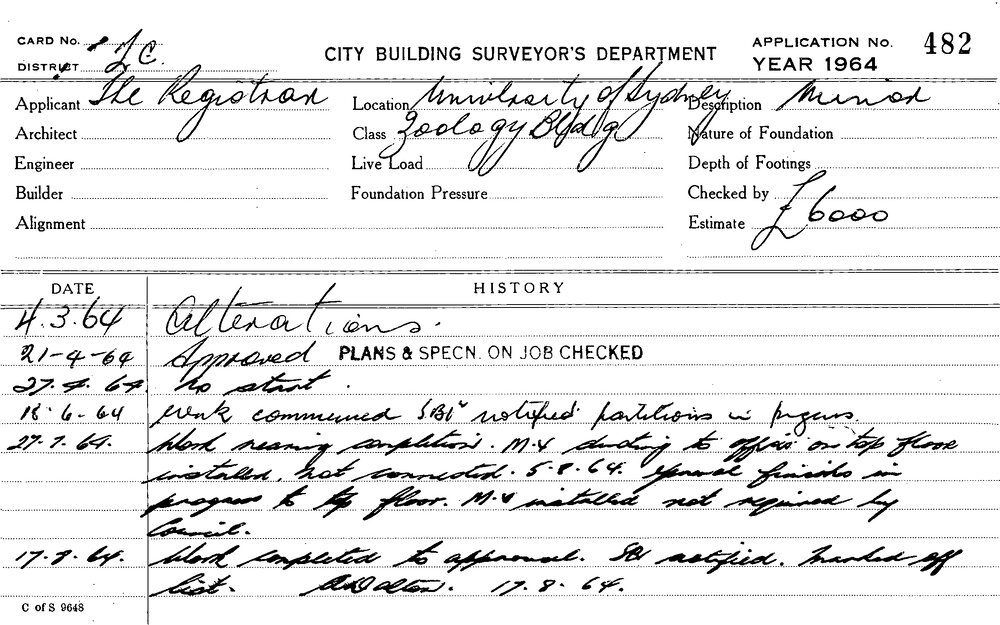 CARD No.
DISTRICT I C.
CITY BUILDING SURVEYOR'S DEPARTMENT
APPLICATION No. 482
YEAR 1964
Applicant The Registrar Location University of Sydney Description Minor
Architect Class Zoology Bldg Nature of Foundation
Engineer Live Load Depth of Footings
Builder Foundation Pressure Checked by
Alignment Estimate £6000
DATE HISTORY
4.3.64 Alterations.
21-4-64 Approved PLANS & SPECN. ON JOB CHECKED
27.4.64. No start.
18-6-64 Work commenced SBI notified partitions in progress.
27.7.64. Work nearing completion. M.V ducting to offices on top floor
installed, not connected. 5-8-64. General finishes in
progress to top floor. M.V installed not required by
Council.
17.8.64. Work completed to approval. SBI notified. Marked off
list. 17.8.64.
C of S 9648